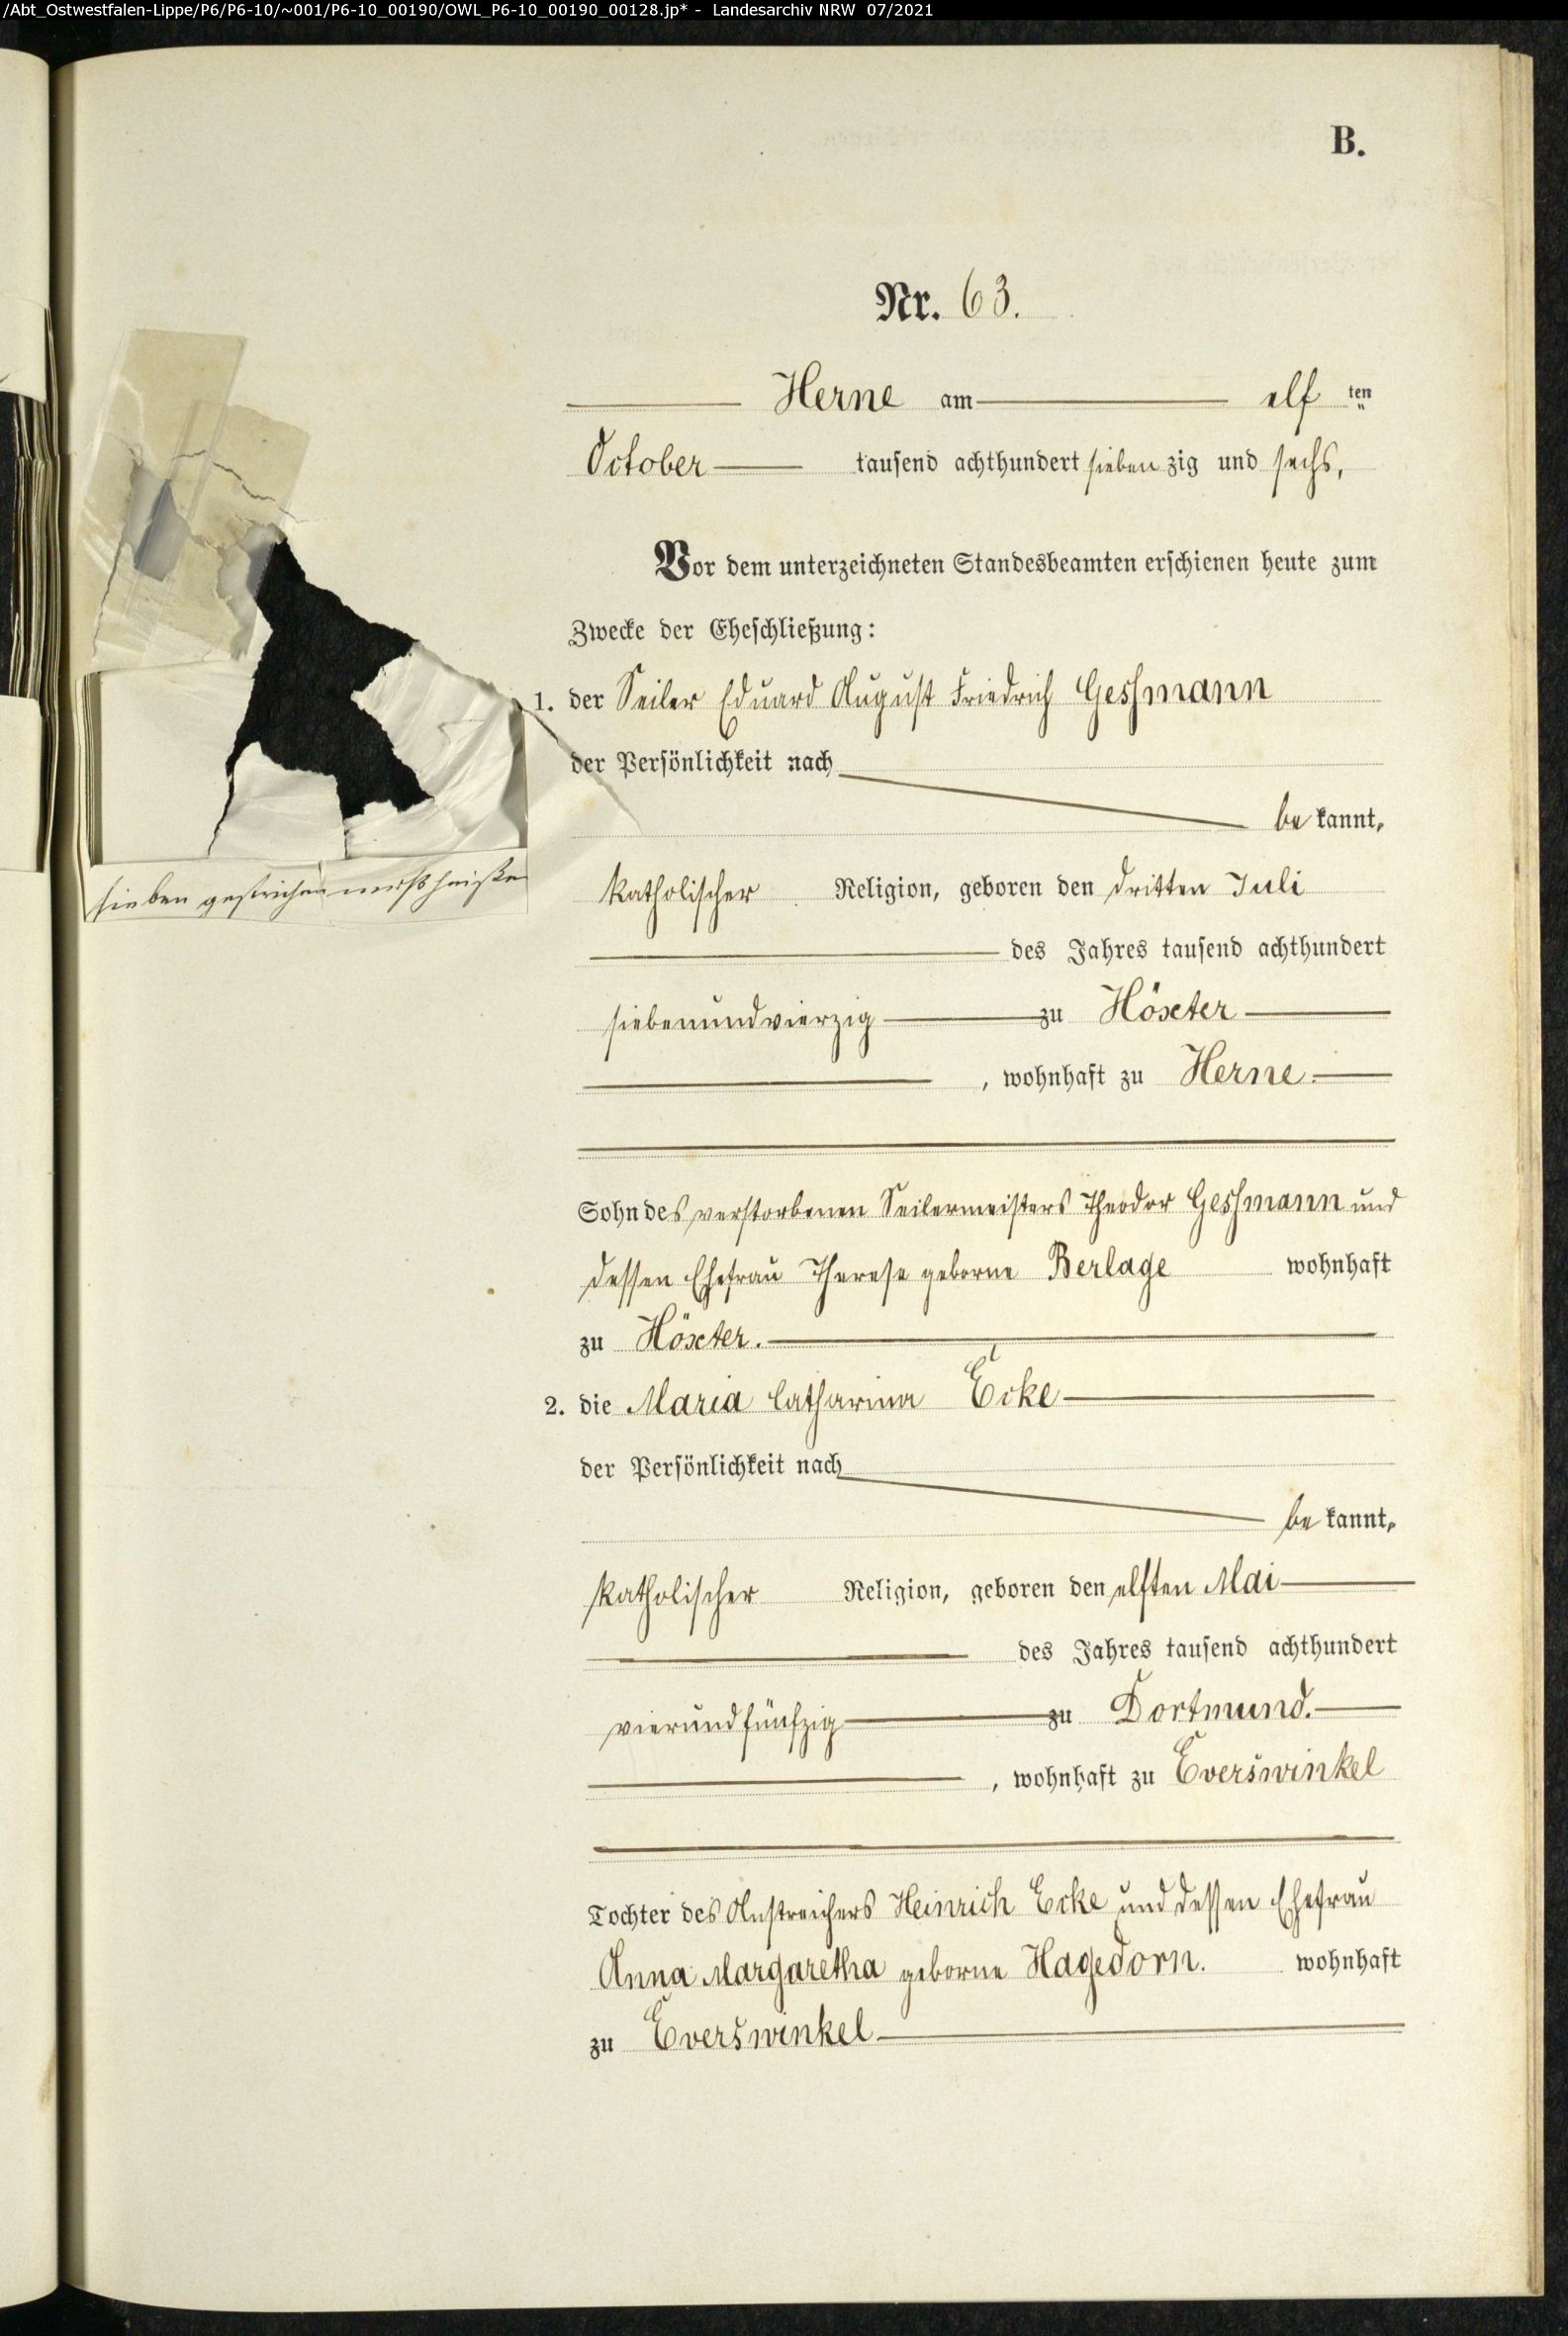 /Abt_Ostwestfalen-Lippe/P6/P6-10/~001/P6-10_00190/OWL_P6-10_00190_00128.jp* - Landesarchiv NRW 07/2021
B.
Nr. 63.
Herne am elf ten
October tausend achthundert siebenzig und sechs,
Vor dem unterzeichneten Standesbeamten erschienen heute zum
Zwecke der Eheschließung:
1. der Seiler Eduard August Friedrich Gessmann
der Persönlichkeit nach
bekannt,
katholischer Religion, geboren den dritten Juli
des Jahres tausend achthundert
siebenundvierzig zu Höxter
, wohnhaft zu Herne.
Sohn des verstorbenen Seilermeisters Theodor Gessmann und
dessen Ehefrau Therese geborne Berlage wohnhaft
zu Höxter.
2. die Maria Catharina Ecke
der Persönlichkeit nach
bekannt,
katholischer Religion, geboren den elften Mai
des Jahres tausend achthundert
vierundfünfzig zu Dortmund.
, wohnhaft zu Everswinkel
Tochter des Anstreichers Heinrich Ecke und dessen Ehefrau
Anna Margaretha geborne Hagedorn. wohnhaft
zu Everswinkel
sieben gestrichen